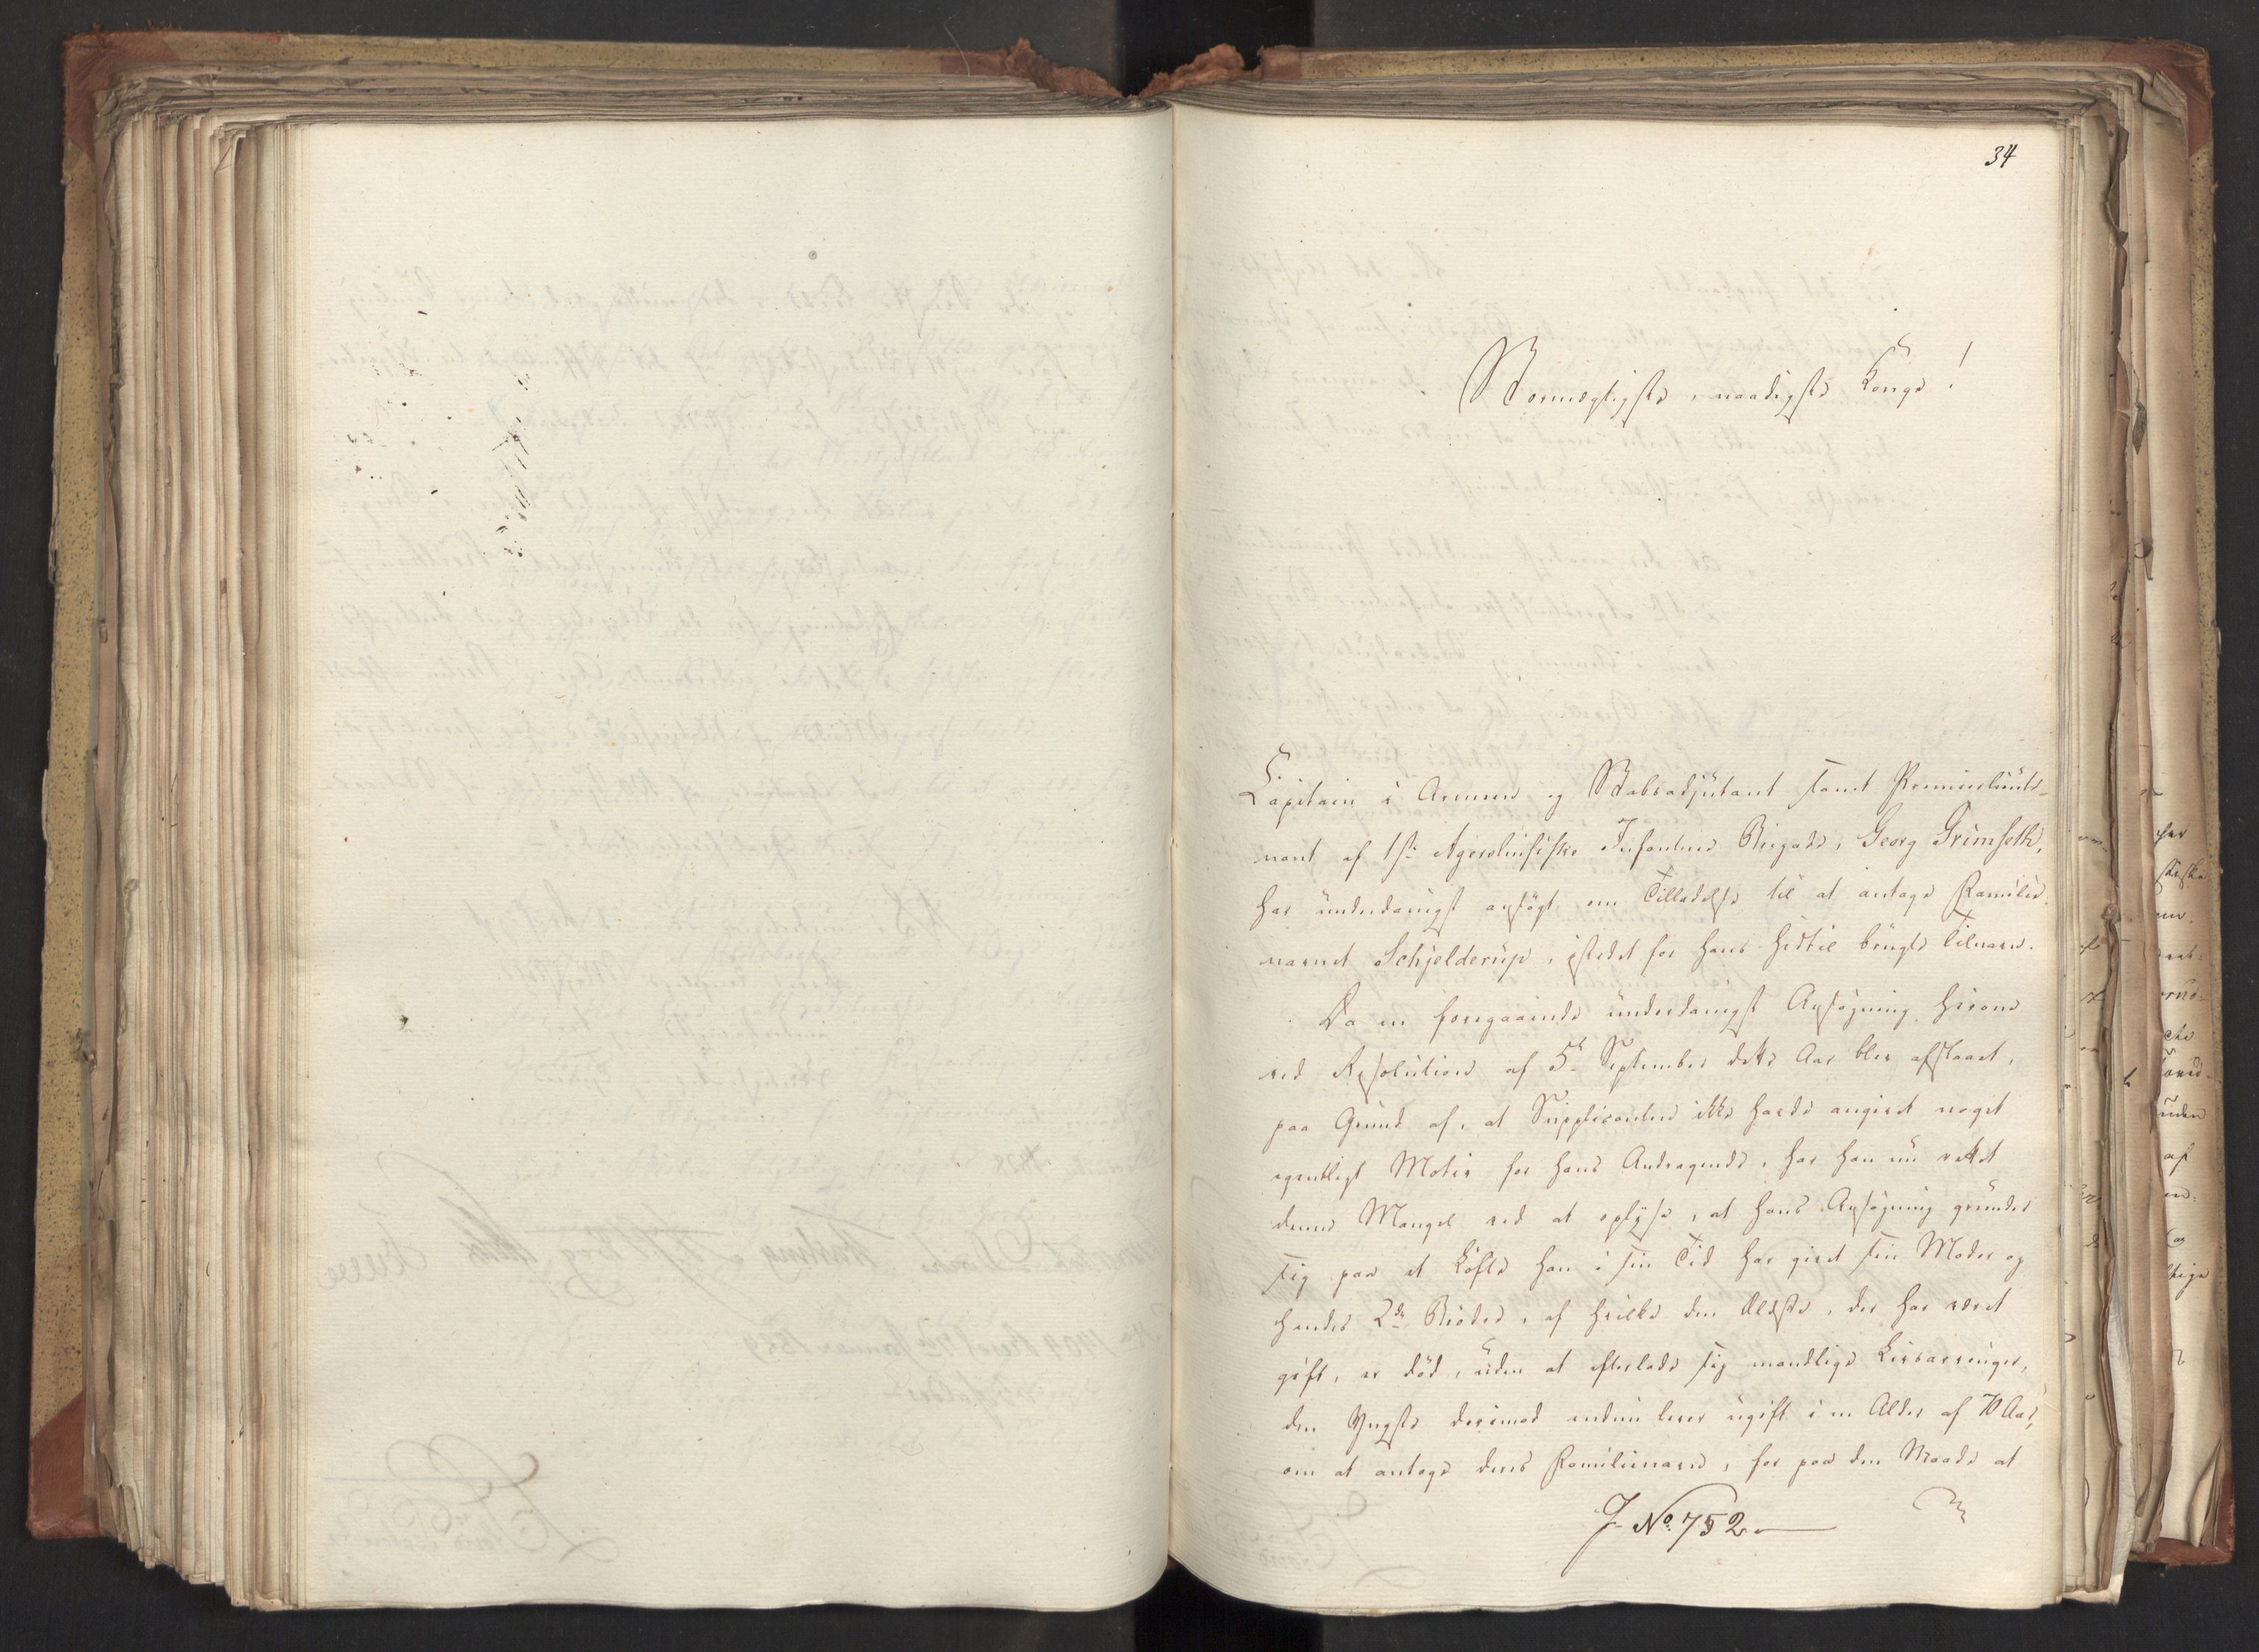 34
Stormægtigste, naadigste Konge!
Capitain i Armeen og Stabsadjutant samt Premierlieute-
nant af 1ste Agershusiske Infanterie Brigade, Georg Grimseth,
har underdanigst ansøgt om Tilladelse til at antage Familie-
navnet Schjelderup, istedet for hans hidtil brugte Tilnavn.
Da en foregaaende underdanigst Ansøgning herom
ved Resolution af 5te September dette Aar blev afslaaet,
paa Grund af, at Supplicanten ikke havde angivet noget
egentligt Motiv for hans Andragende, har han nu rettet
denne Mangel ved at oplyse, at hans Ansøgning grunder
sig paa et Løfte han i sin Tid har givet sin Moder og
hendes 2de Brødre, af hvilke den Ældste, der har været
gift, er død, uden at efterlade sig mandlige Livsarvinger,
den Yngste derimod endnu lever ugift i en Alder af 70 Aar,
om at antage deres Familienavn, for paa den Maade at
J. No. 752